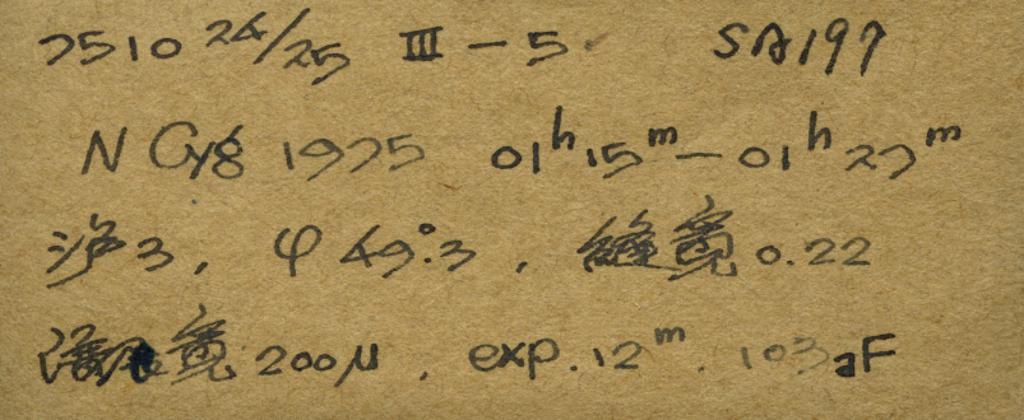 7510 24/25 III - 5. SA197
N Cyg 1975 01ʰ15ᵐ — 01ʰ27ᵐ
沪3, φ 49°.3, 缝宽 0.22
宽 200μ, exp. 12ᵐ. 103aF